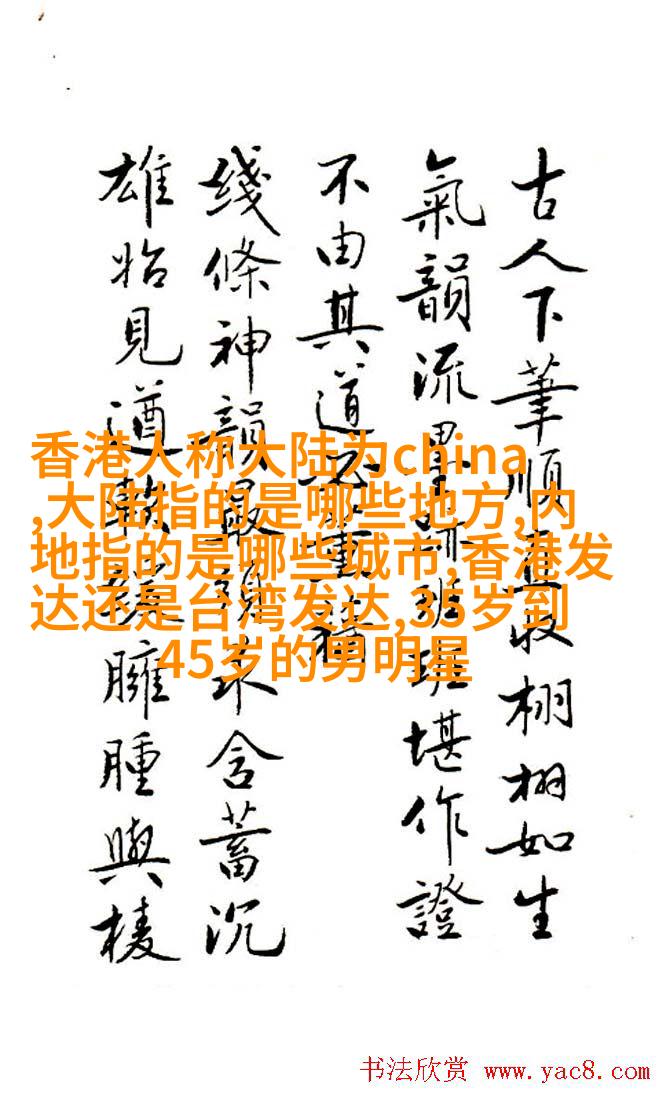 古人下筆順收栩栩如生
氣韻流墨跡班班堪作證
不由其道
綫條神韻最含蓄沉
雄始見遒臃腫與棱
香港人称大陆为china
,大陆指的是哪些地方,内
地指的是哪些城市,香港发
达还是台湾发达,35岁到
45岁的男明星
书法欣赏 www.yac8.com